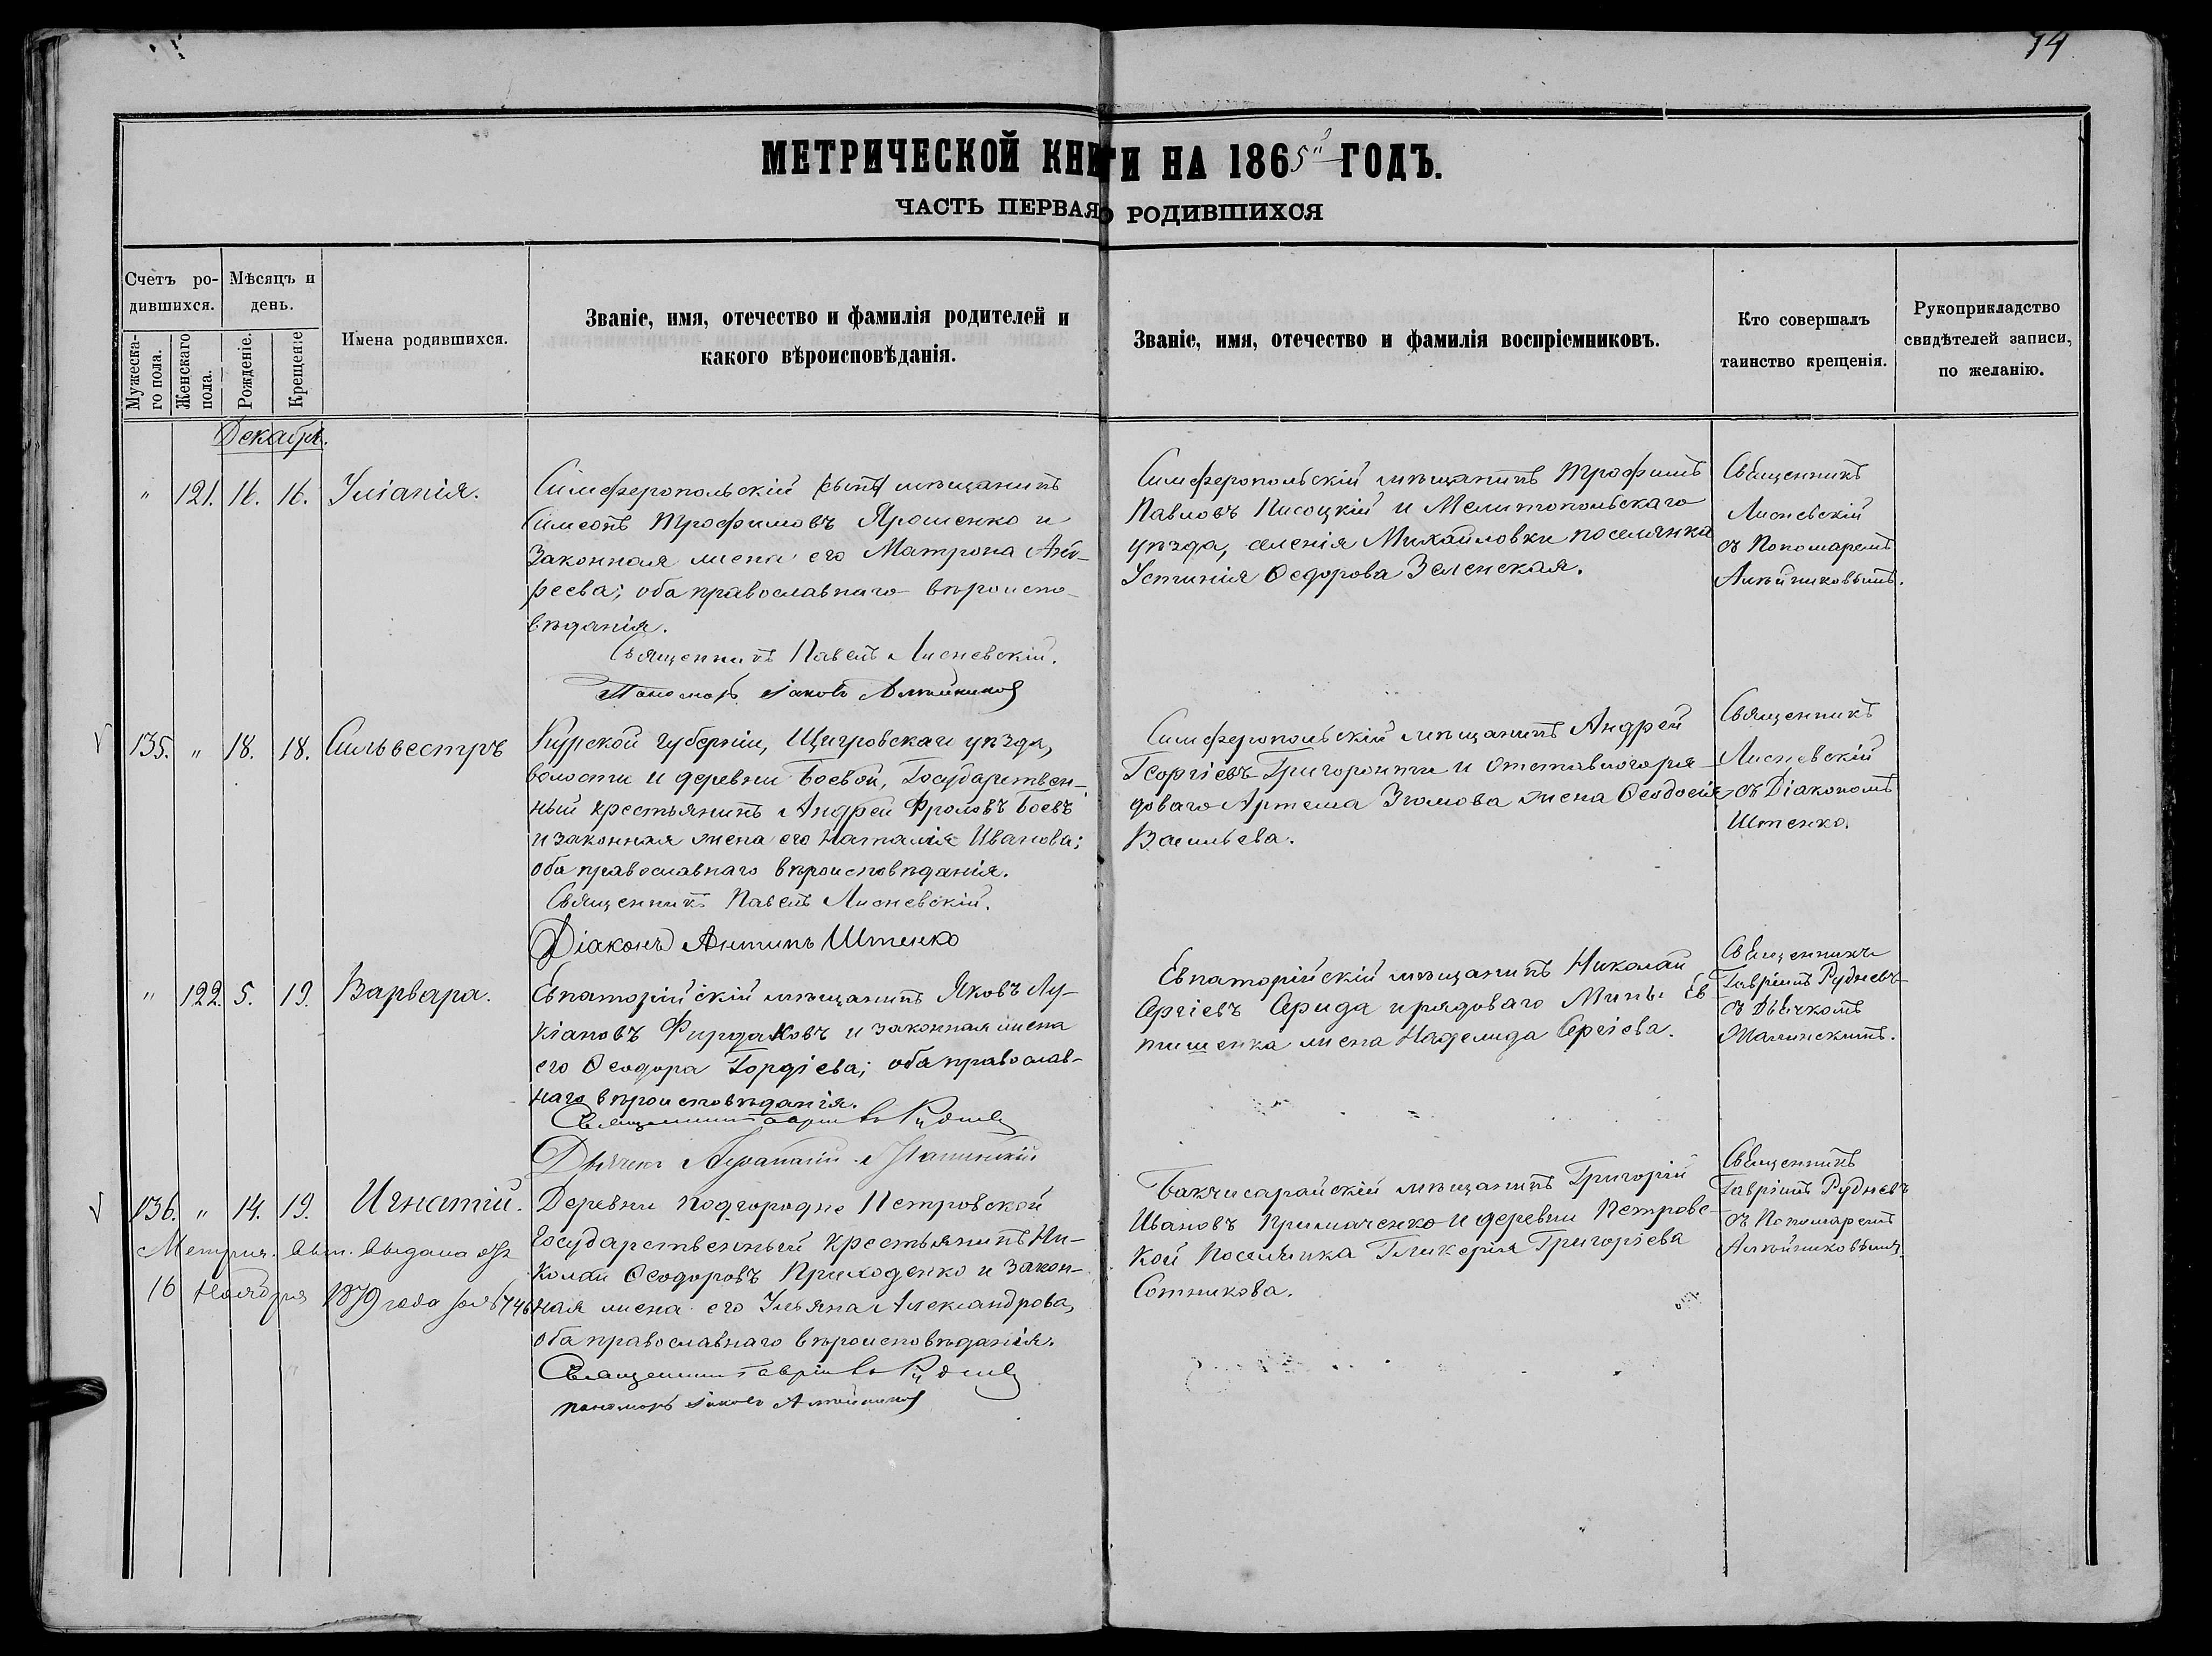 74
МЕТРИЧЕСКОЙ КНИГИ НА 1865й ГОДЪ.
ЧАСТЬ ПЕРВАЯ О РОДИВШИХСЯ
Счетъ ро-
дившихся.
Мужеска-
го пола.
Женскаго
пола.
Мѣсяцъ и
день.
Рожденіе.
Крещеніе
Имена родившихся.
Званіе, имя, отечество и фамилія родителей и
какого вѣроисповѣданія.
Званіе, имя, отечество и фамилія воспріемниковъ.
Кто совершалъ
таинство крещенія.
Рукоприкладство
свидѣтелей записи,
по желанію.
Декабря.
" 121. 16. 16. Уліанія.
Симферопольскій мѣщанинъ
Симеонъ Трофимовъ Ярошенко и
законная жена его Матрона
реева; оба православнаго вѣроиспо-
вѣданія.
Священникъ Павелъ Лисневскій.
Пономарь Іаковъ Алтйниковъ
Симферопольскій мѣщанинъ Трофимъ
Павловъ Писоцкій и Мелитопольскаго
уѣзда, селенія Михайловки поселянка
Устинія Ѳедорова Зеленская.
Священникъ
Лисневскій
съ Пономаремъ
135. " 18. 18. Сильвестръ
Курской губерніи, Щигровскаго уѣзда,
волости и деревни Боевой, Государствен-
ный крестьянинъ Андрей Фроловъ Боевъ
и законная жена его Наталія Иванова;
оба православнаго вѣроисповѣданія.
Священникъ Павелъ Лисневскій.
Діаконъ Антипъ Штенко
Симферопольскій мѣщанинъ Андрей
Георгіевъ и отставного ря-
доваго Артема жена Ѳеодосія
Васильева.
Священникъ
Лисневскій
съ Діакономъ
Штенко.
" 122. 5. 19. Варвара.
Евпаторійскій мѣщанинъ Яковъ Лу-
кіановъ Фурдаковъ и законная жена
его Ѳеодора Гордіева; оба православ-
наго вѣроисповѣданія.
Священникъ Гавріилъ Рудневъ
Дьячекъ
Евпаторійскій мѣщанинъ Николай
Сергіевъ Середа и рядоваго Мины Ев-
тишенка жена Надежда Сергіева.
Священникъ
Гавріилъ Рудневъ
съ Дьячкомъ
136. " 14. 19. Игнатій.
Метрич. выдана
16 Ноября 1879 года
Деревни Подгородне Петровской
Государственный крестьянинъ Ни-
колай Ѳеодоровъ Приходенко и закон-
ная жена его Ульяна Александрова,
оба православнаго вѣроисповѣданія.
Священникъ Гавріилъ Рудневъ
Пономарь Іаковъ
Бакчисарайскій мѣщанинъ Григорій
Ивановъ Примаченко и деревни Петровс-
кой поселянка Гликерія Григоріева
Сотникова.
Священникъ
Гавріилъ Рудневъ
съ Пономаремъ